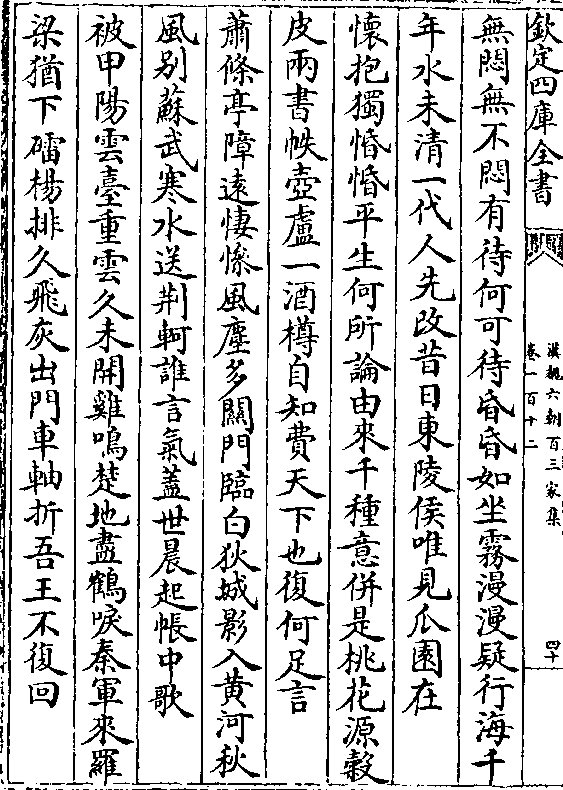 欽定四庫全書
漢魏六朝百三家集
卷一百十二
四十
無悶無不悶有待何可待昏昏如坐霧漫漫疑行海千
年水未清一代人先改昔日東陵侯唯見瓜園在
懷抱獨惛惛平生何所論由來千種意併是桃花源縠
皮兩書帙壺盧一酒樽自知費天下也復何足言
蕭條亭障遠悽慘風塵多關門臨白狄城影入黄河秋
風别蘇武寒水送荆軻誰言氣葢世晨起帳中歌
被甲陽雲臺重雲久未開雞鳴楚地盡鶴唳秦軍來羅
梁猶下礌楊排久飛灰出門車軸折吾王不復回